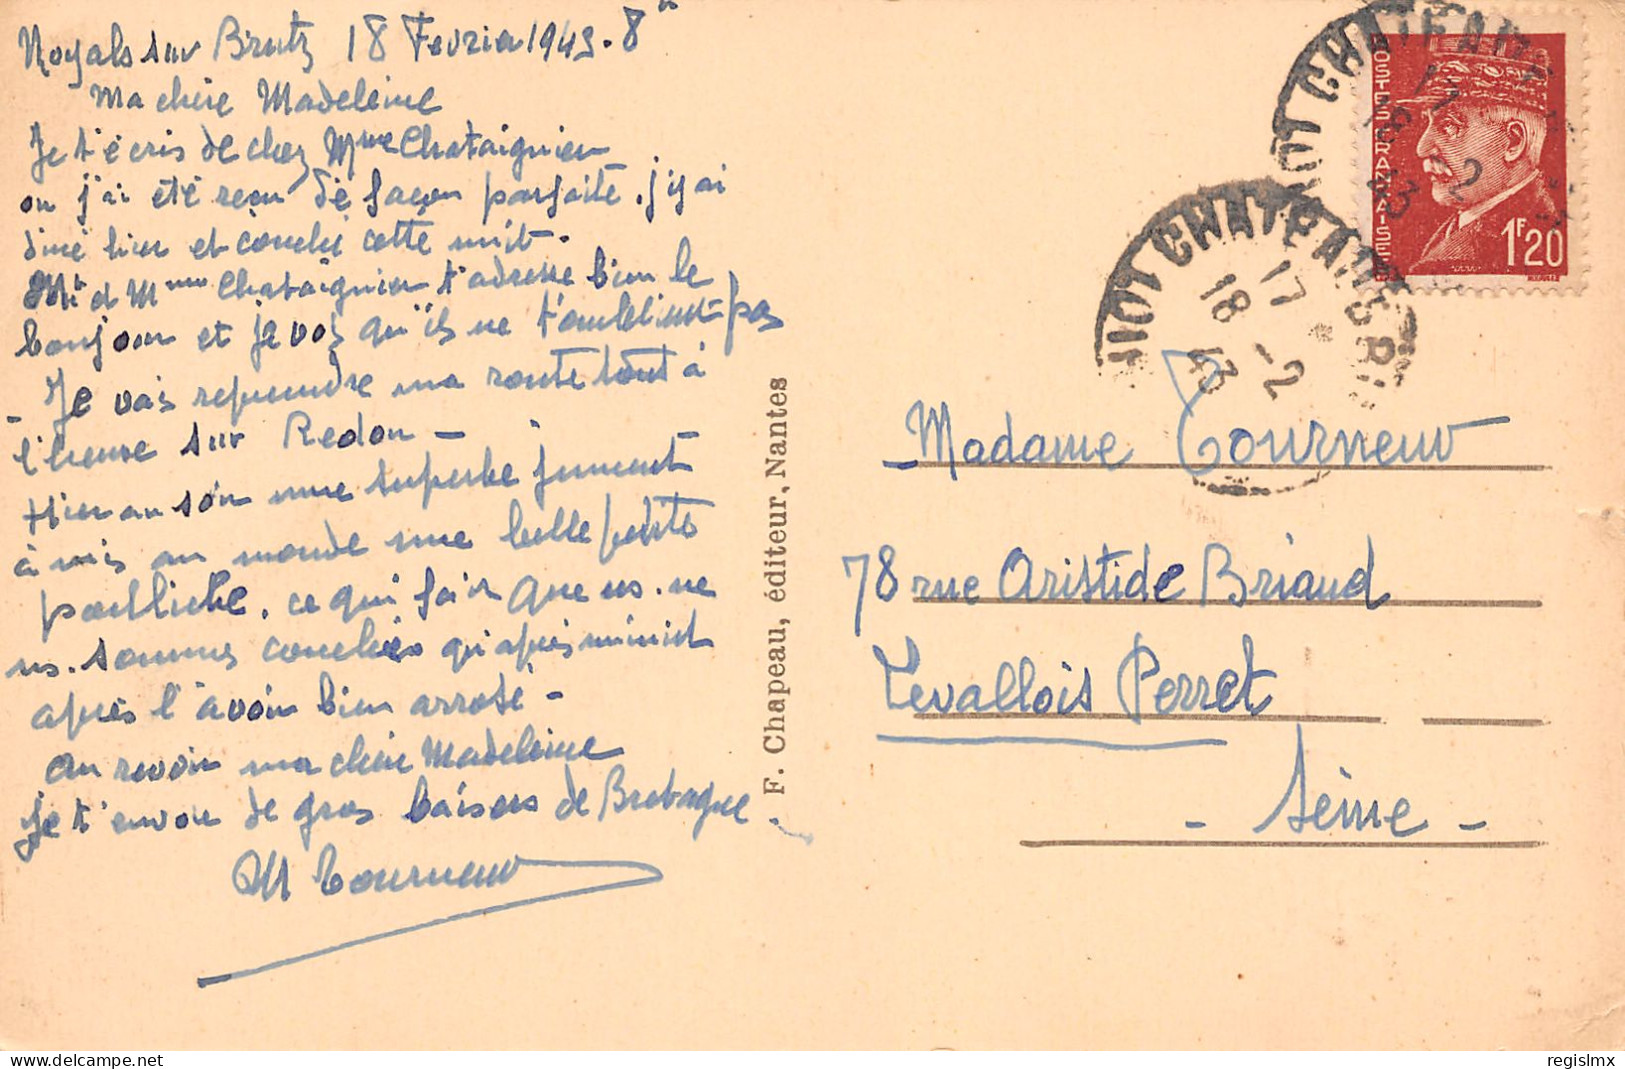 Noyals sur Brutz 18 Fevrier 1943 - 8h
Ma chère Madeleine
Je t'écris de chez Mme Chataignier
ou j'ai été reçu de façon parfaite. j'y ai
diné hier et couché cette nuit.
Mr et Mme Chataignier t'adresse bien le
bonjour et je vois qu'ils ne t'oublient pas
- Je vais reprendre ma route tout à
l'heure sur Redon -
Hier au soir une superbe jument
à mis au monde une belle petite
pouliche, ce qui fait que ns. ne
ns. sommes couchés qu'après minuit
après l'avoir bien arrosé -
Au revoir ma chère Madeleine
Je t'envoie de gros baisers de Bretagne.
M Tourneur
F. Chapeau, éditeur, Nantes
POSTES FRANÇAISES
1F20
17
18 -2
43
17
18 -2
43
Madame Tourneur
78 rue Aristide Briand
Levallois Perret
- Seine -
regislmx